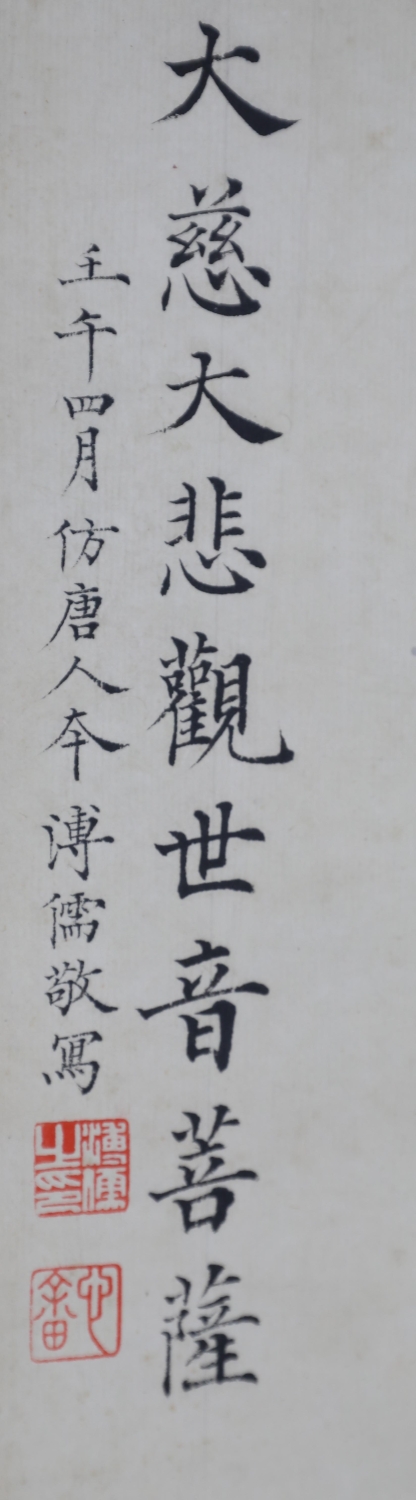 大慈大悲觀世音菩薩
壬午四月仿唐人夲溥儒敬寫
溥儒之印
心畬